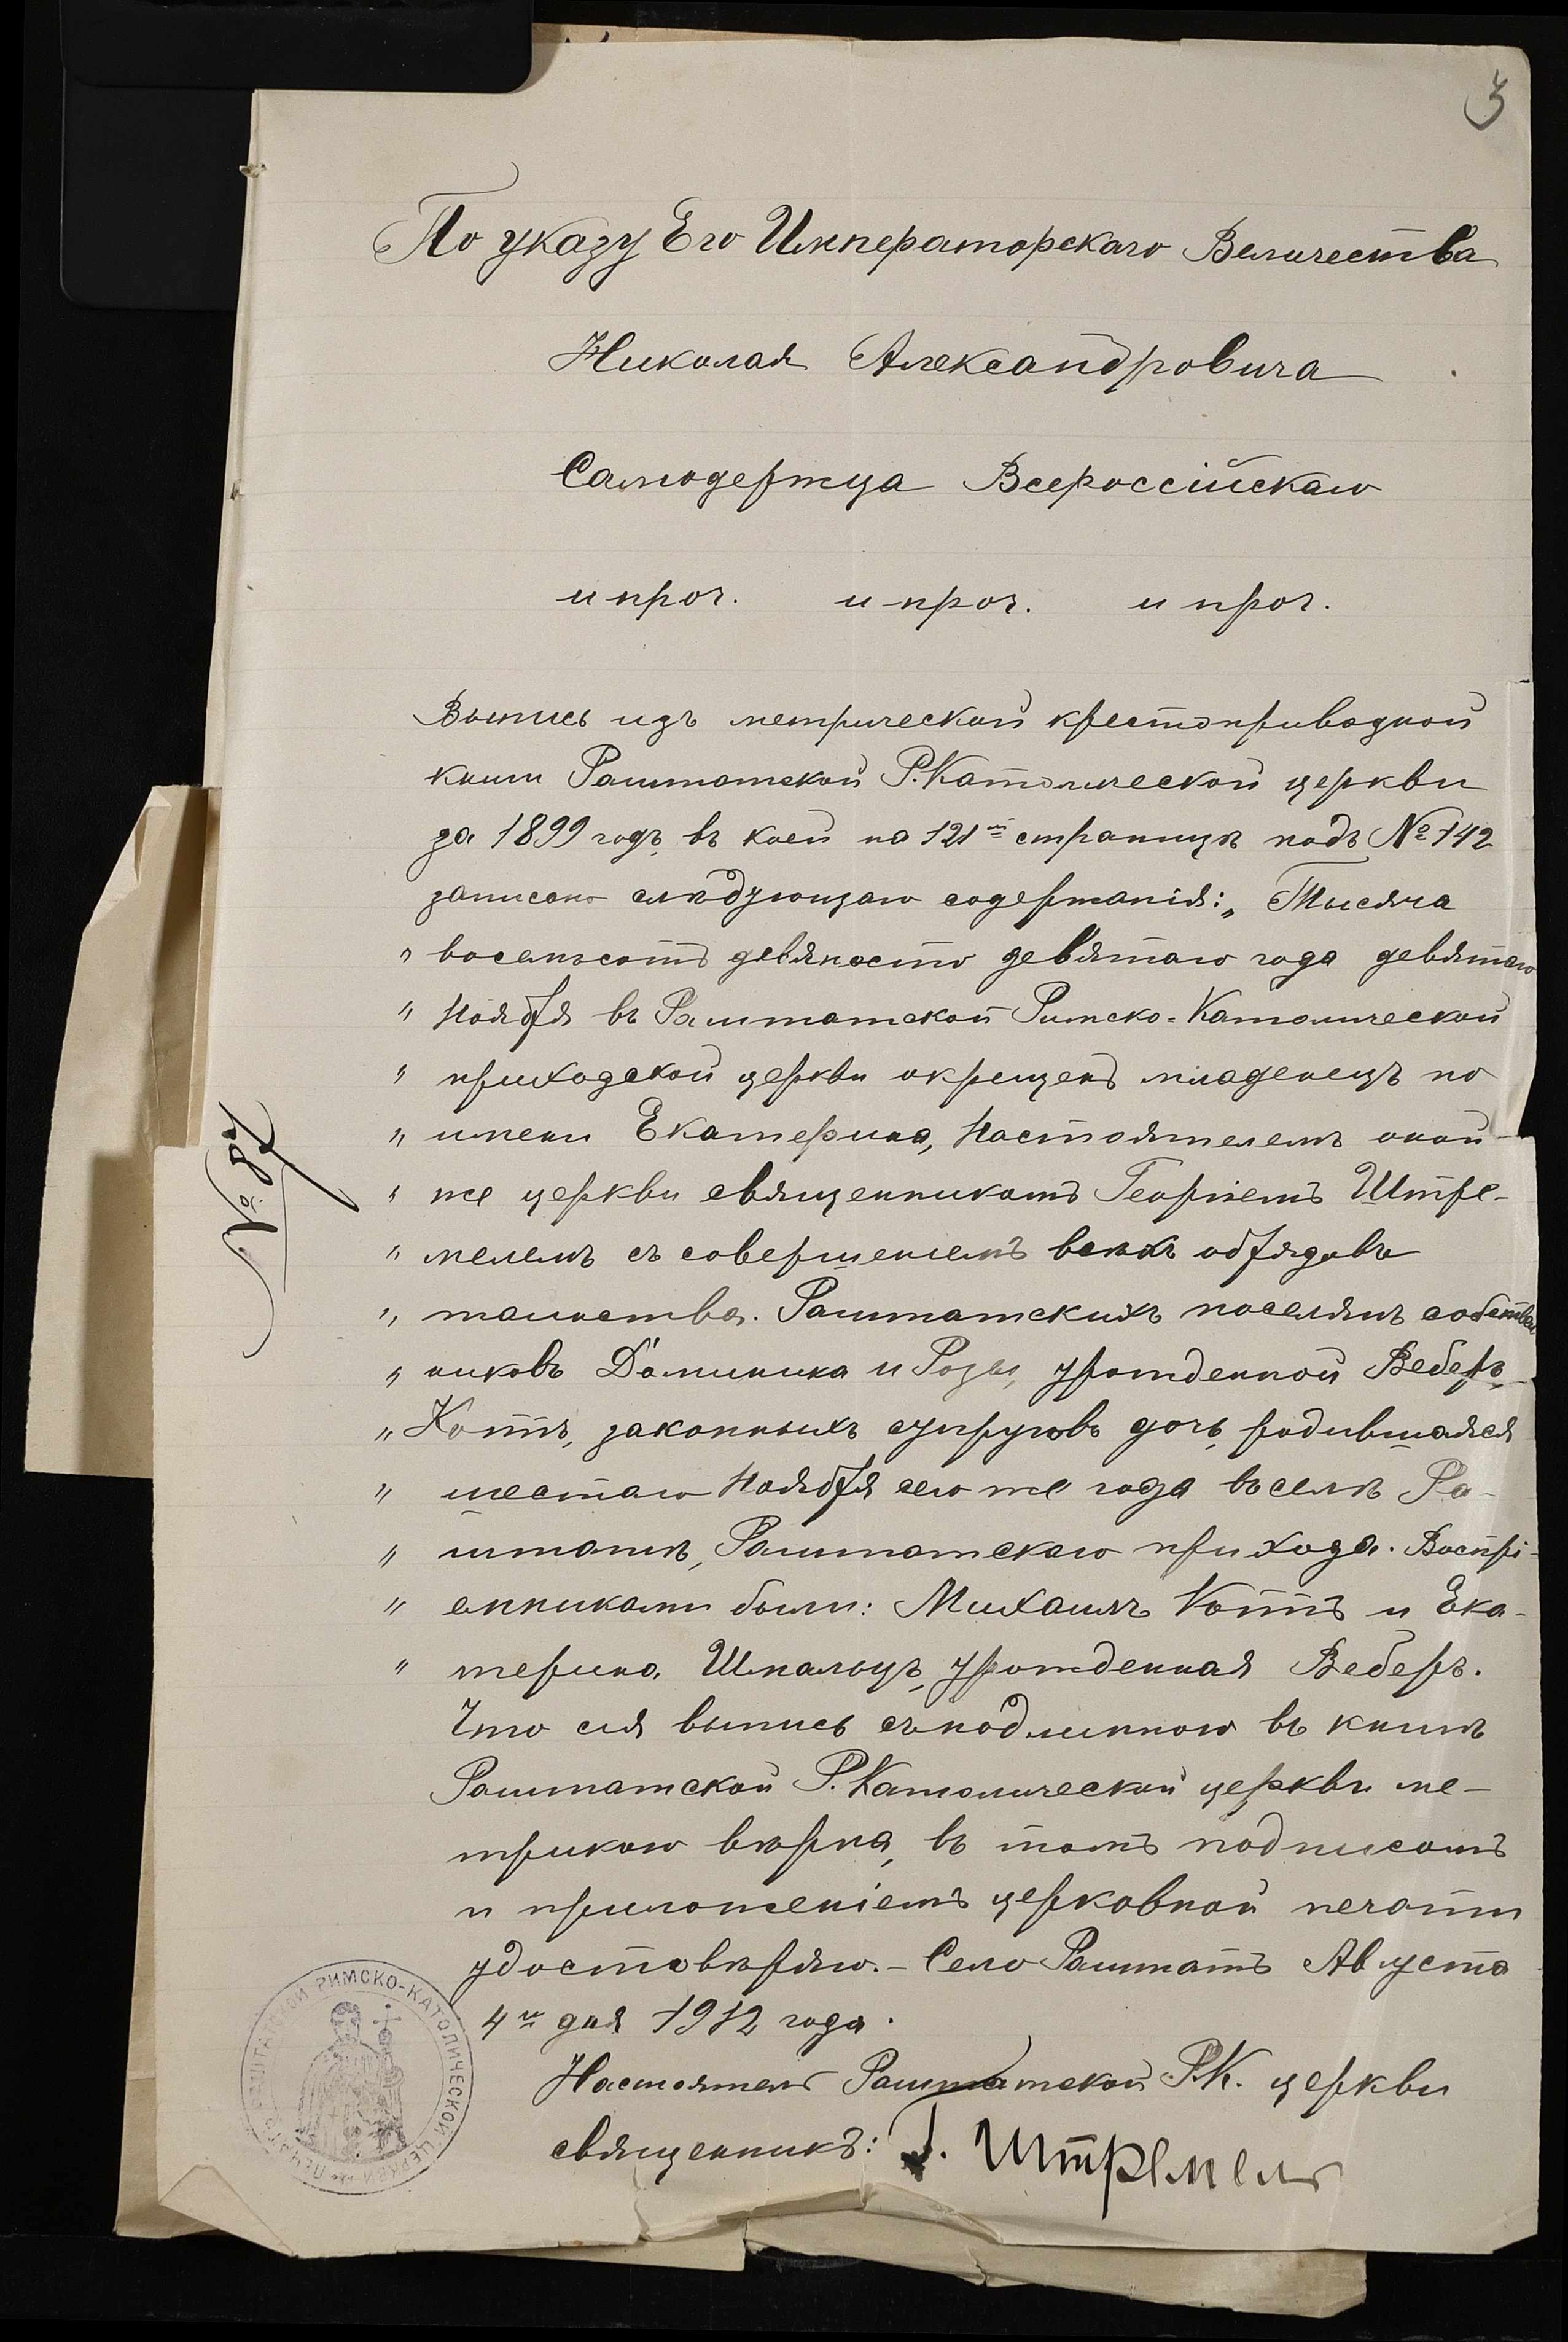 3
По указу Его Императорскаго Величества
Николая Александровича
Самодержца Всероссійскаго
и проч. и проч. и проч.
Выпись изъ метрической крестоприводной
книги Раштатской Р. Католической церкви
за 1899 годъ, въ коей на 121й страницѣ подъ № 142
записано слѣдующаго содержанія: „Тысяча
„ восемьсотъ девяносто девятаго года девятаго
„ Ноября въ Раштатской Римско-Католической
„ приходской церкви окрещенъ младенецъ по
„ имени Екатерина, Настоятелемъ оной-
„ же церкви священникомъ Георгіемъ Штре-
„ мелемъ съ совершеніемъ всѣхъ обрядовъ
„ таинства. Раштатскихъ поселянъ собствен
„ никовъ Доминика и Розы, урожденной Веберъ,
„ Коттъ, законныхъ супруговъ дочь, родившаяся
„ шестаго Ноября сего же года въ селѣ Ра-
„ штатѣ, Раштатскаго прихода. Воспрі-
„ емниками были: Михаилъ Коттъ и Ека-
„ терина Шмальцъ, урожденная Веберъ.
Что сія выпись съ подлинною въ книгѣ
Раштатской Р. Католической церкви ме-
трикою вѣрна, въ томъ подписомъ
и приложеніемъ церковной печати
удостовѣряю. - Село Раштатъ Августа
4го дня 1912 года.
Настоятель Раштатской Р.К. церкви
священникъ: Г. Штремель
№ 87
ПЕЧАТЬ РАШТАТСКОЙ РИМСКО-КАТОЛИЧЕСКОЙ ЦЕРКВИ